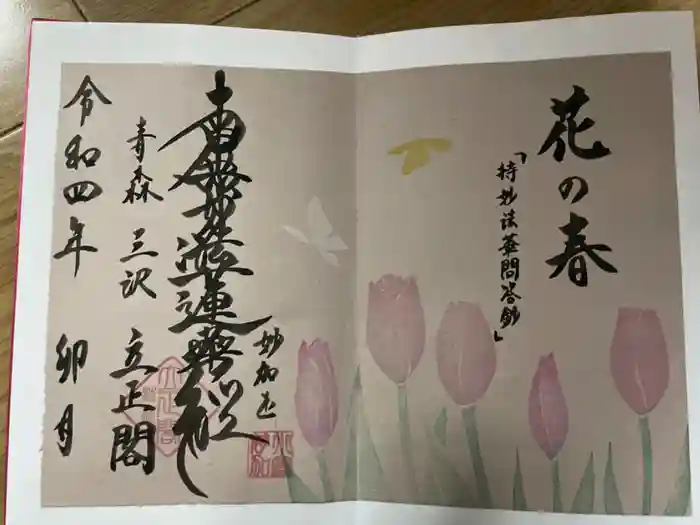 花の春
「持妙法華問答鈔」
妙加之
南無妙法蓮華経
青森 三沢 立正閣
令和四年 卯月